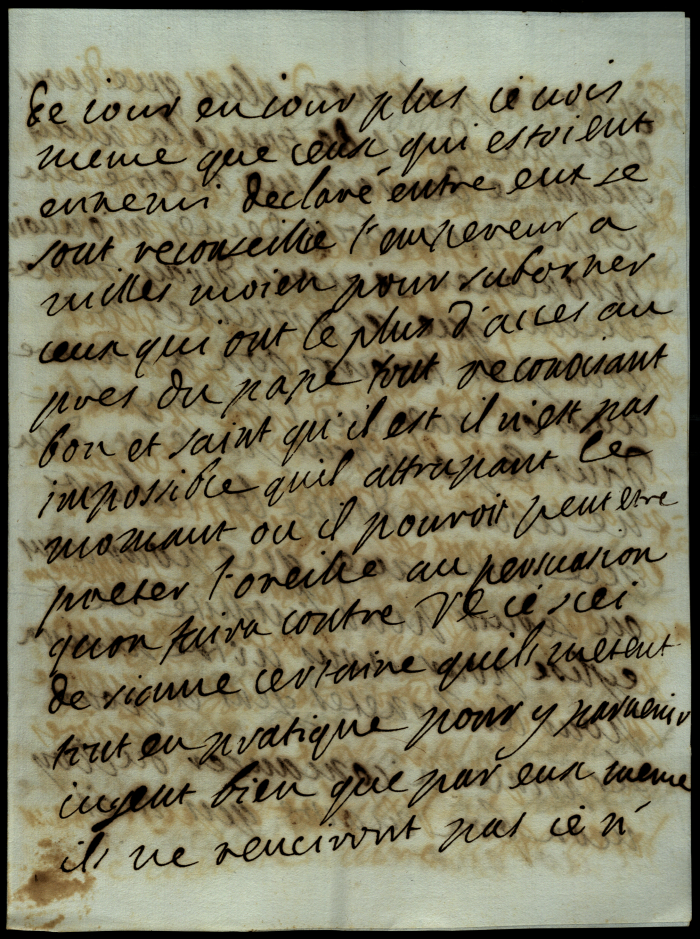 de iour en iour plus ie vois
meme que ceux qui estoient
ennemi declaré entre eut se
sont reconseillie l'empereur a
milles moien pour suborner
ceux qui ont le plus d'acces au
pres du pape tout reconoisant
bon et saint qu'il est il n'est pas
impossible quil attrapant le
momant ou il pouroit peut etre
preter l'oreille au persuasion
quon faira contre V E ie sei
de siance certaine quils metent
tout en pratique pour y parvenir
iugent bien que par eux meme
ils ne reuciront pas ie n'